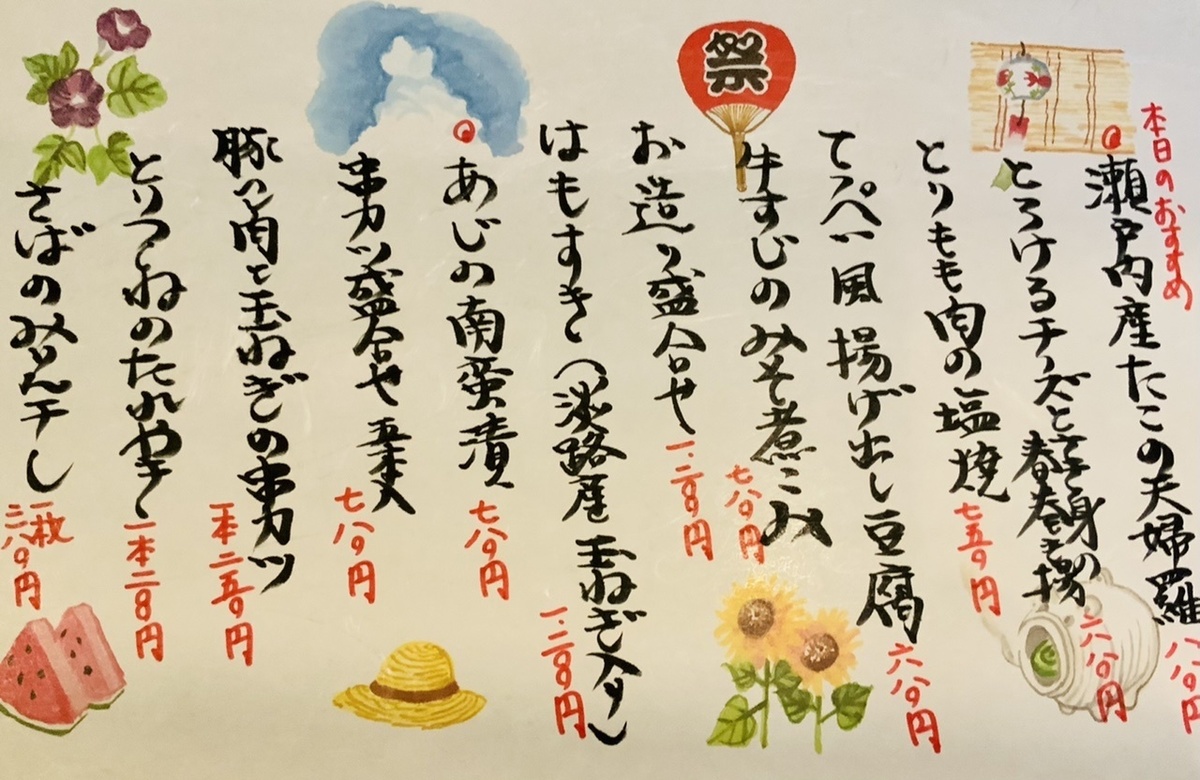 本日のおすすめ
瀬戸内産たこの天婦羅 八八〇円
とろけるチーズと身の春巻き揚 六八〇円
とりもも肉の塩焼 七五〇円
てっぺい風揚げ出し豆腐 六八〇円
祭
牛すじのみそ煮こみ 七八〇円
お造り盛合せ 一.二〇〇円
はもすき（淡路産玉ねぎ入り） 一.二〇〇円
あじの南蛮漬 七八〇円
串カツ盛合せ 五本入 七八〇円
豚肉と玉ねぎの串カツ 一本二五〇円
とりつくねのたれやき 一本二〇〇円
さばのみりん干し 一枚三八〇円